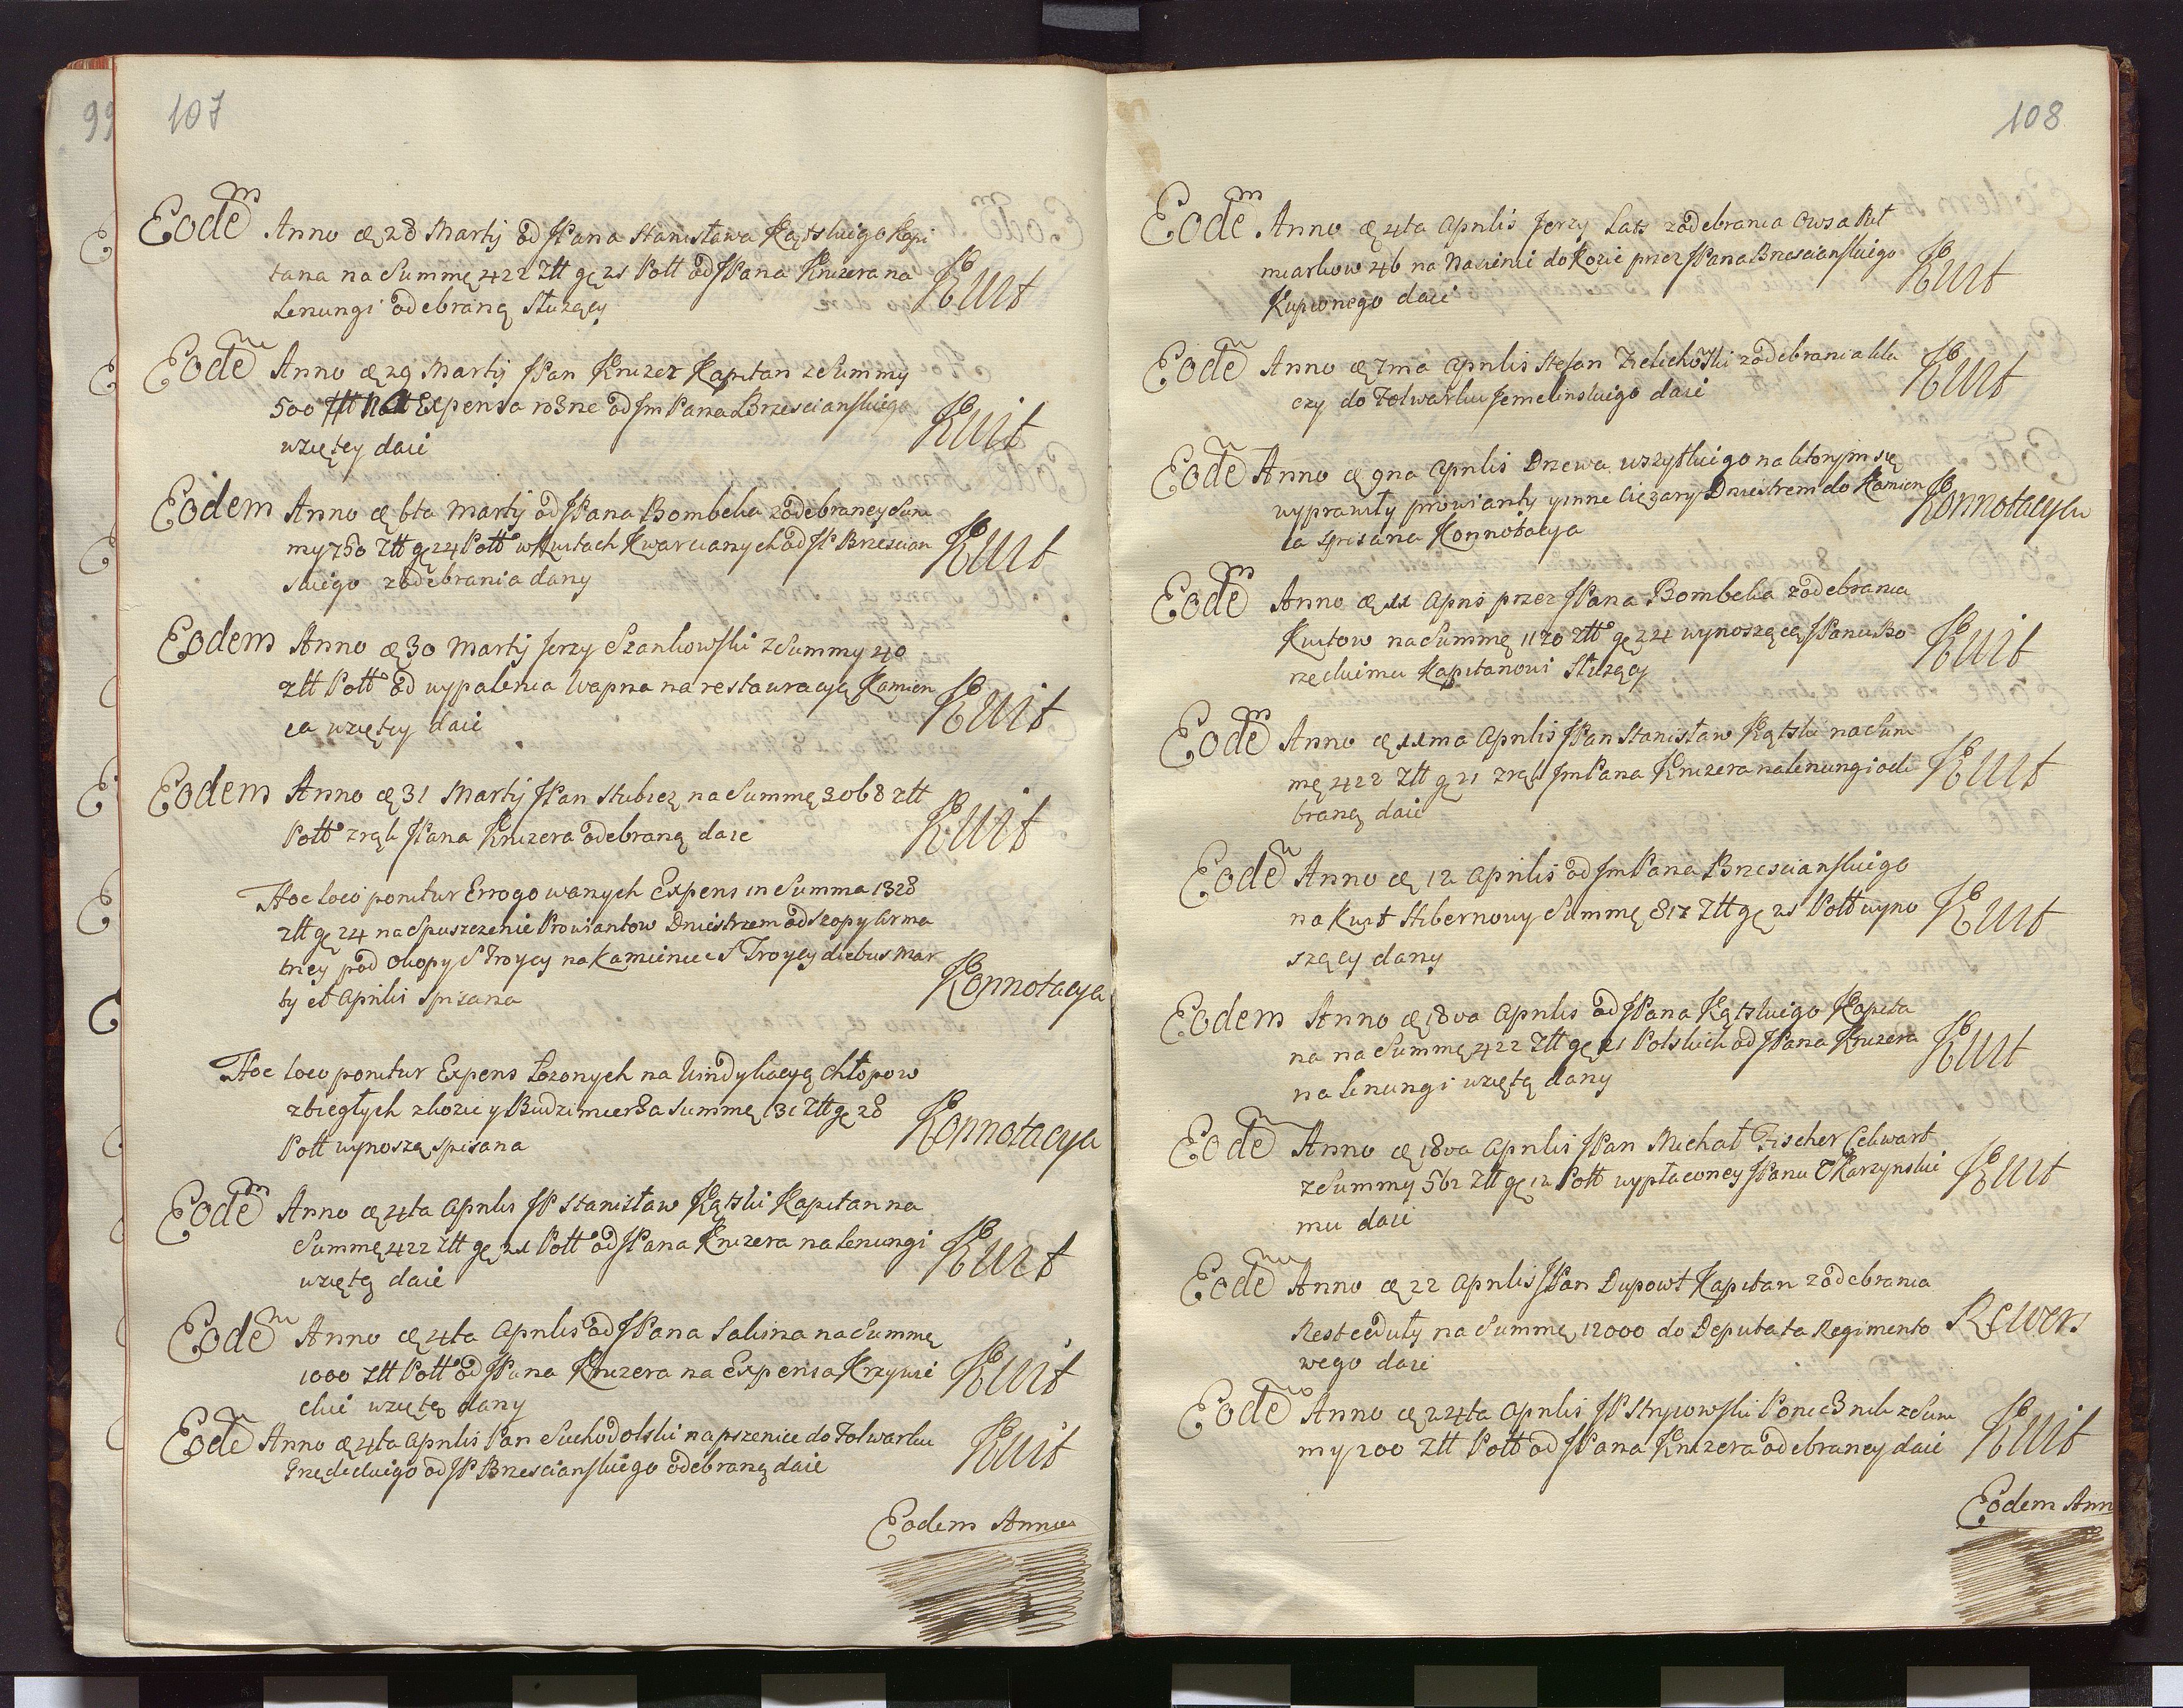 99
107
Eodem Anno æ 28 Martij od JPana Stanisława Kątskiego Kapi
tana na Summę 422 Ztt gę 21 Pott od JPana Kruzera na
Lenungi odebraną Służący
Kwit
Eodem Anno æ 29 Martij JPan Kruzer Kapitan z Summy
500 Ztt na Expensa rożne od Jm Pana Brzescianskiego
wziętey daie
Kwit
Eodem Anno æ 6ta Martij od JPana Bombeka z odebraney Sum
my 750 Ztt gę 24 Pott w Kwitach Kwarcianych od JP Brzescian
skiego z odebrania dany
Kwit
Eodem Anno æ 30 Martij Jerzy Szankowski z Summy 40
Ztt Pott od wypalenia Wapna na restauracyą Kamien
ca wziętey daie
Kwit
Eodem Anno æ 31 Martij JPan Stubicz na Summę 3068 Ztt
Pott z rąk JPana Kruzera odebraną daie
Kwit
Hoc loco ponitur Errogowanych Expens in Summa 1328
Ztt gę 24 na Spuszczenie Prowiantow Dniestrem od Szopy Arma
tney pod Okopy S Troycy na Kamieniec S Troycy diebus Mar
ty et Aprilis spisana
Konnotacya
Hoc loco ponitur Expens Łozonych na Windykacyą Chłopow
zbiegłych z Kozie y Budzimierza Summę 31 Ztt gę 28
Pott wynoszą spisana
Konnotacya
Eodem Anno æ 4ta Aprilis JP Stanisław Kątski Kapitan na
Summę 422 Ztt gę 21 Pott od JPana Kruzera na Lenungi
wziętą daie
Kwit
Eodem Anno æ 4ta Aprilis od JPana Salisina na Summę
1000 Ztt Pott od JPana Kruzera na Expensa Krzywi
ckie wziętą dany
Kwit
Eodem Anno æ 4ta Aprilis Pan Suchodolski na pszenice do Folwarku
Gródeckiego od JP Brzescianskiego odebraną daie
Kwit
Eodem Anno
108
Eodem Anno æ 4ta Aprilis Jerzy Lats z odebrania Owsa Puł
miarkow 46 na Nasienie do Kozie przez JPana Brzescianskiego
Kupionego daie
Kwit
Eodem Anno æ 7ma Aprilis Stefan Zielichowski z odebrania Kla
czy do Folwarku Jemelinskiego daie
Kwit
Eodem Anno æ 9na Aprilis Drzewa wszytkiego na ktorym się
wyprawiły prowianty y inne Ciężary Dniestrem do Kamien
ca spisana Konnotacya
Konnotacya
Eodem Anno æ 11 Apris przez JPana Bombeka z odebrania
Kwitow na Summę 1120 Ztt gę 24 wynoszącą JPanu Bo
reckiemu Kapitanowi Służący
Kwit
Eodem Anno æ 11ma Aprilis JPan Stanisław Kątski na Sum
mę 422 Ztt gę 21 z rąk Jm Pana Kruzera na Lenungi ode
braną daie
Kwit
Eodem Anno æ 12 Aprilis od Jm Pana Brzescianskiego
na Kwit Hibernowy Summę 817 Ztt gę 21 Pott wyno
szący dany
Kwit
Eodem Anno æ 18va Aprilis od JPana Kątskiego Kapita
na na Summę 422 Ztt gę 21 Polskich od JPana Kruzera
na Lenungi wziętą dany
Kwit
Eodem Anno æ 18va Aprilis JPan Michał Fischer Celwart
z Summy 562 Ztt gę 12 Pott wypłaconey JPanu Skarzynskie
mu daie
Kwit
Eodem Anno æ 22 Aprilis JPan Dupont Kapitan z odebrania
Rest ceduły na Summę 12000 do Deputata Regimento
wego daie
Rewers
Eodem Anno æ 24ta Aprilis JP Strycowski Porucznik z Sum
my 200 Ztt Pott od JPana Kruzera odebraney daie
Kwit
Eodem Ann